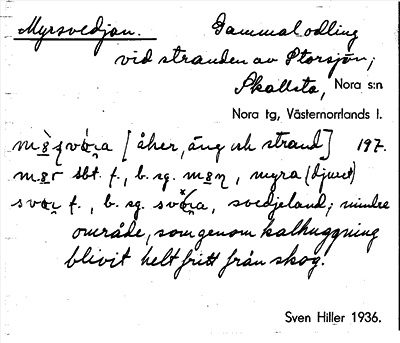 Myrsvedjan. Gammal odling
vid stranden av Storsjön;
Skallsta, Nora s:n
Nora tg, Västernorrlands l.
[åker, äng och strand] 197.
sbt. f., b. sg. , myra (djuret)
f., b. sg. , svedjeland; mindre
område, som genom kalhuggning
blivit helt fritt från skog.
Sven Hiller 1936.